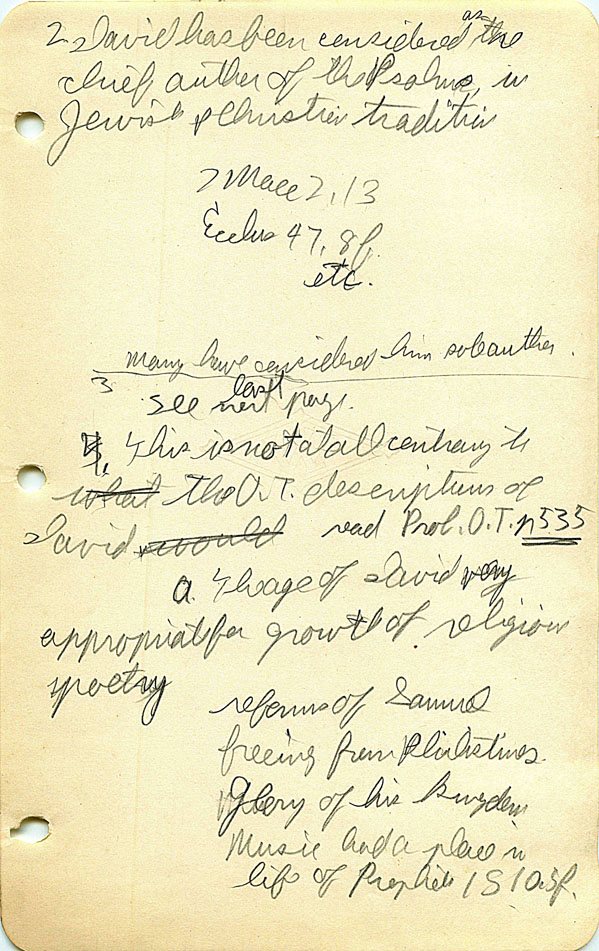 2. David has been considered as the
chief author of the Psalms, in
Jewish & Christian tradition
2 Macc 2, 13
Ecclus 47, 8f.
etc.
many have considered him sole author.
3
see last page.
4. This is not at all contrary to
what the O.T. description of
David would read Prob. O.T. p535
a. The age of David very
appropriate for growth of religious
poetry
reforms of Samuel
freeing from Philistines.
Glory of his kingdom
Music had a place in
life of Prophets 1 S 10.5f.